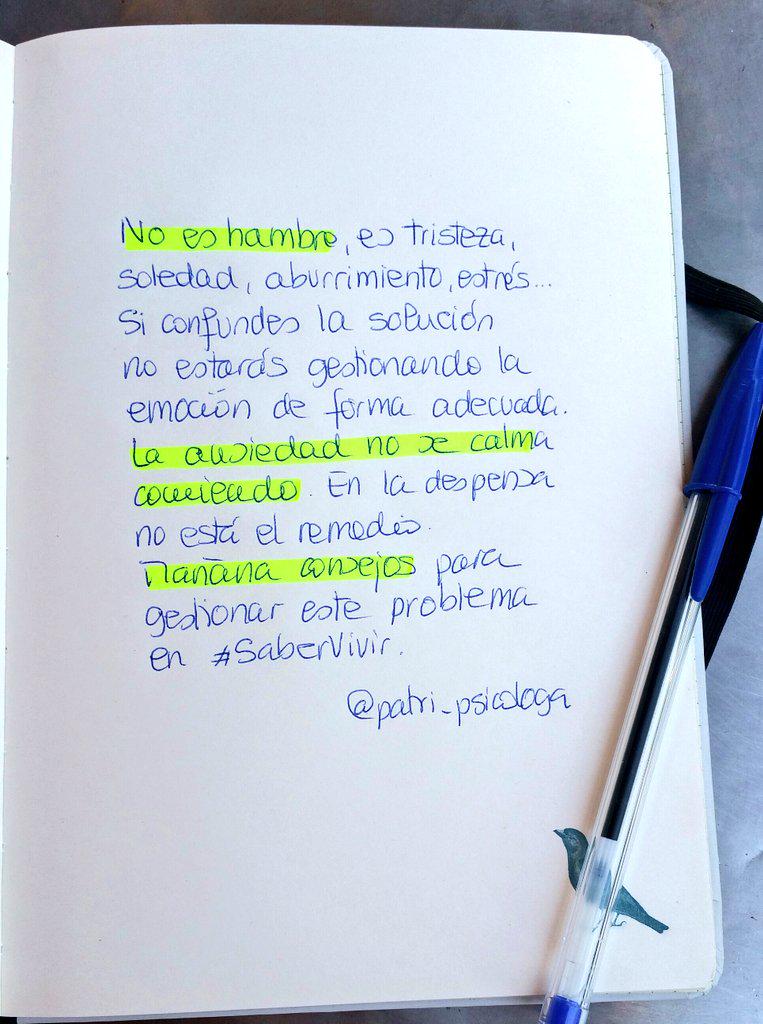 No es hambre, es tristeza,
soledad, aburrimiento, estrés...
Si confundes la solución
no estarás gestionando la
emoción de forma adecuada.
La ansiedad no se calma
comiendo. En la despensa
no está el remedio.
Mañana consejos para
gestionar este problema
en #SaberVivir.
@patri_psicologa